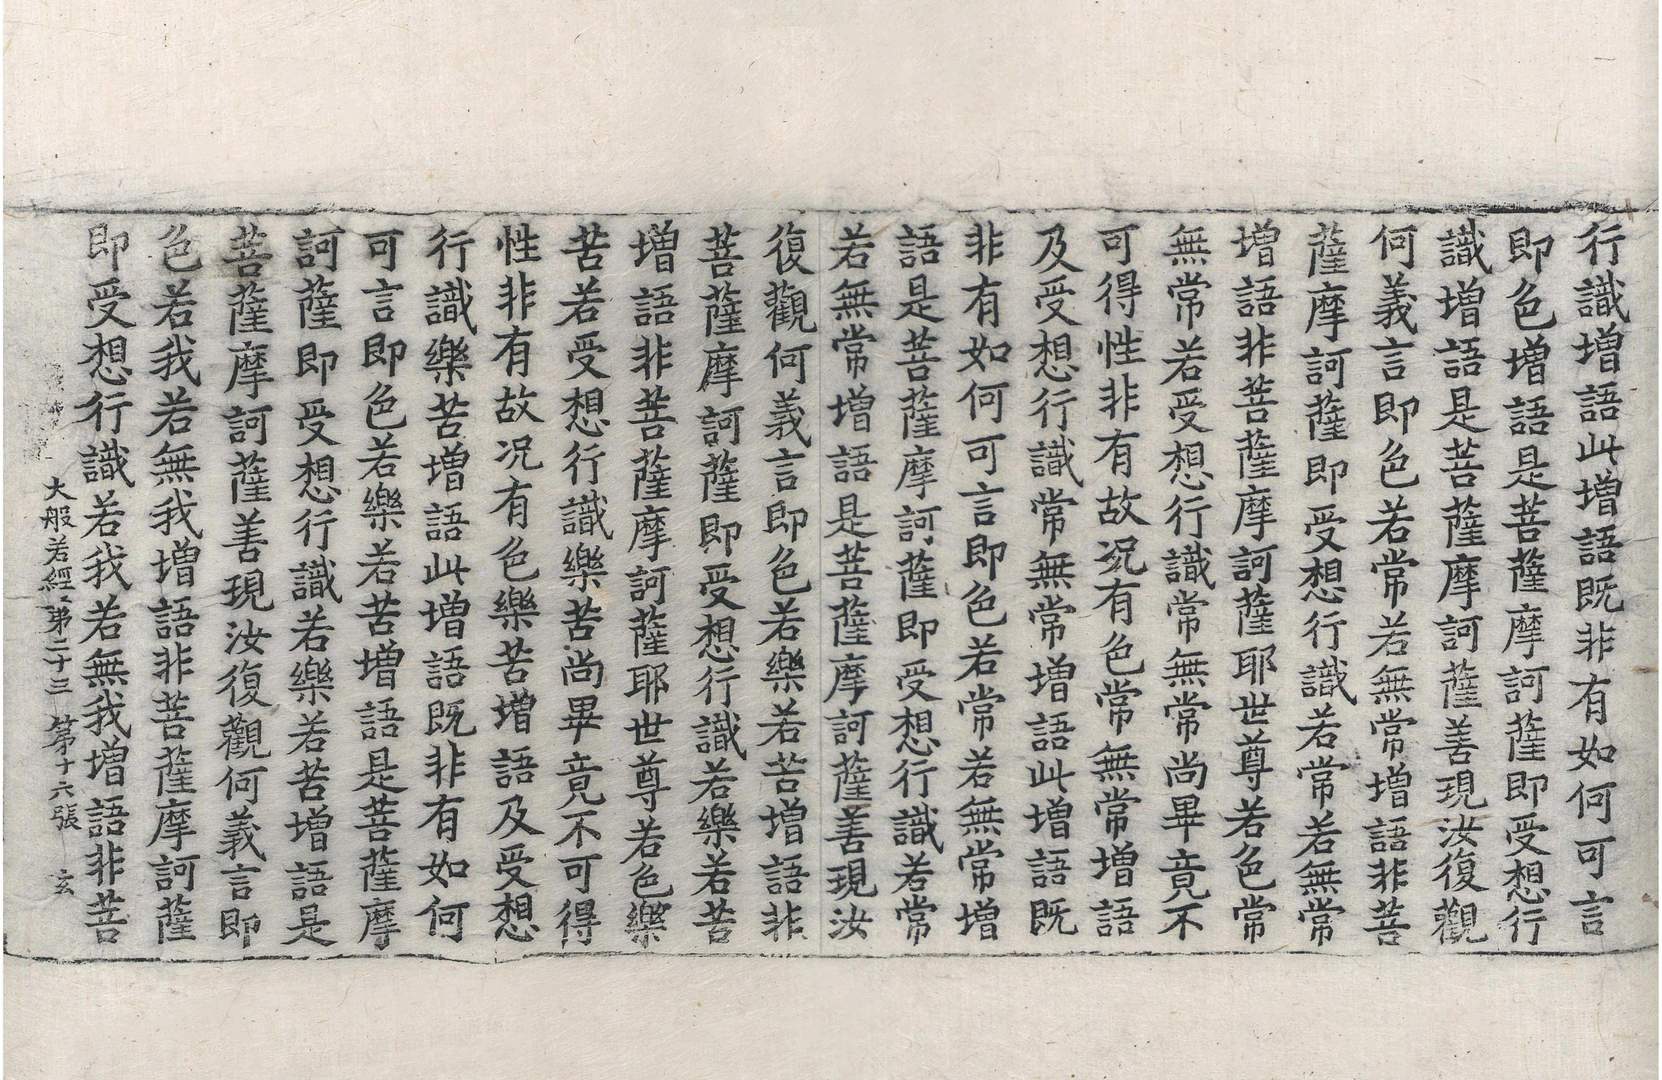 行識增語此增語既非有如何可言
即色增語是菩薩摩訶薩即受想行
識增語是菩薩摩訶薩善現汝復觀
何義言即色若常若無常增語非菩
薩摩訶薩即受想行識若常若無常
增語非菩薩摩訶薩耶世尊若色常
無常若受想行識常無常尚畢竟不
可得性非有故况有色常無常增語
及受想行識常無常增語此增語既
非有如何可言即色若常若無常增
語是菩薩摩訶薩即受想行識若常
若無常增語是菩薩摩訶薩善現汝
復觀何義言即色若樂若苦增語非
菩薩摩訶薩即受想行識若樂若苦
增語非菩薩摩訶薩耶世尊若色樂
苦若受想行識樂苦尚畢竟不可得
性非有故况有色樂苦增語及受想
行識樂苦增語此增語既非有如何
可言即色若樂若苦增語是菩薩摩
訶薩即受想行識若樂若苦增語是
菩薩摩訶薩善現汝復觀何義言即
色若我若無我增語非菩薩摩訶薩
即受想行識若我若無我增語非菩
大般若經第二十三 第十六張 玄